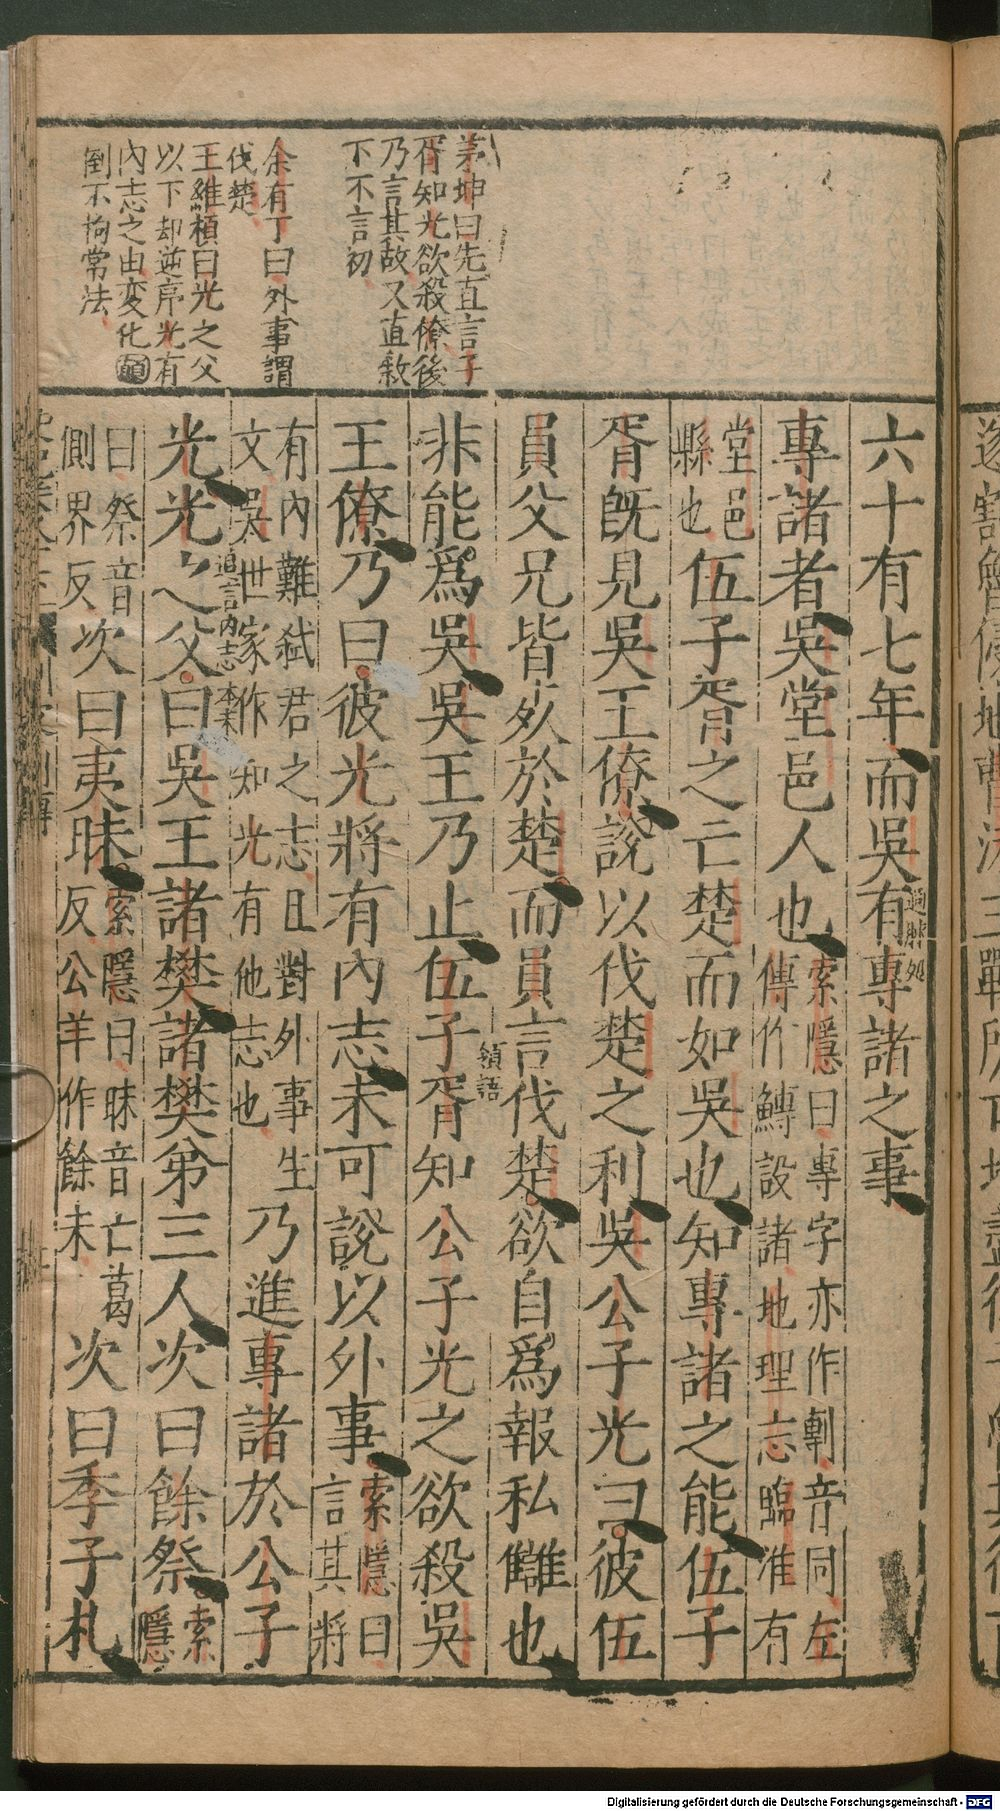 茅坤曰先直言子
胥知光欲殺僚後
乃言其故又直敘
下不言初
余有丁曰外事謂
伐楚
王維楨曰光之父
以下却逆序光有
內志之由変化
倒不拘常法
六十有七年而吳有專諸之事
專諸者吳堂邑人也
索隱曰專字亦作剸音同左
傳作鱄設諸地理志臨淮有
堂邑
縣也
伍子胥之亡楚而如吳也知專諸之能伍子
胥既見吳王僚說以伐楚之利吳公子光曰彼伍
員父兄皆死於楚而員言伐楚欲自爲報私讎也
非能爲吳吳王乃止伍子胥知公子光之欲殺吳
王僚乃曰彼光將有內志未可說以外事
索隱曰
言其將
有內難弑君之志且對外事生
文吳世家作知光有他志也
乃進專諸於公子
光光之父曰吳王諸樊諸樊弟三人次曰餘祭
索
隱
曰祭音
側界反
次曰夷眛
索隱曰眛音亡葛
反公羊作餘未
次曰季子札
追言内志
領語
Digitalisierung gefördert durch die Deutsche Forschungsgemeinschaft - DFG